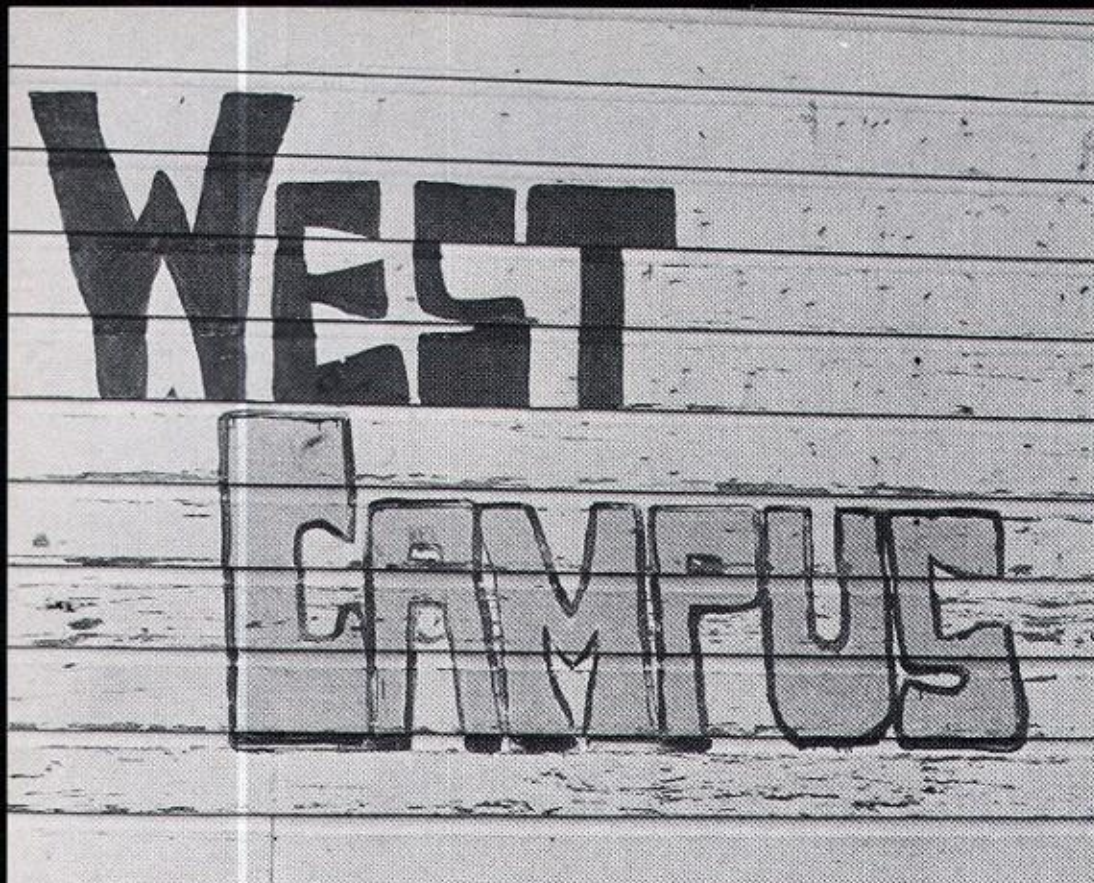 WEST
CAMPUS